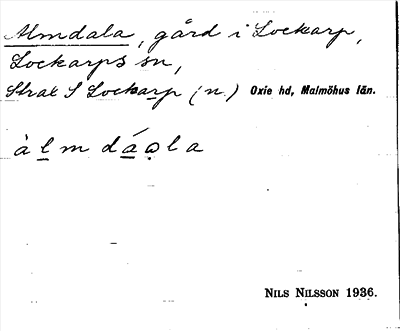 Almdala, gård i Lockarp,
Lockarps sn,
Strax S Lockarp (n.) Oxie hd, Malmöhus län.
àlmdáǫla
NILS NILSSON 1936.